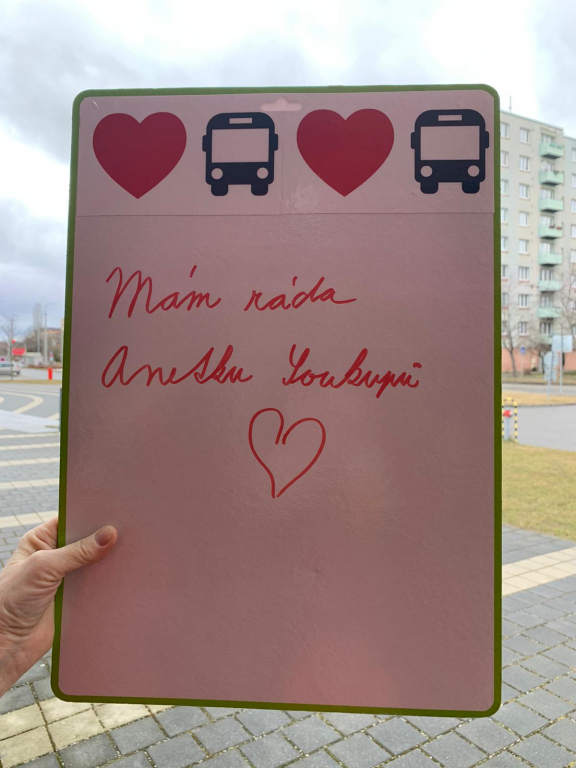 Mám ráda
Anetku Soukupů